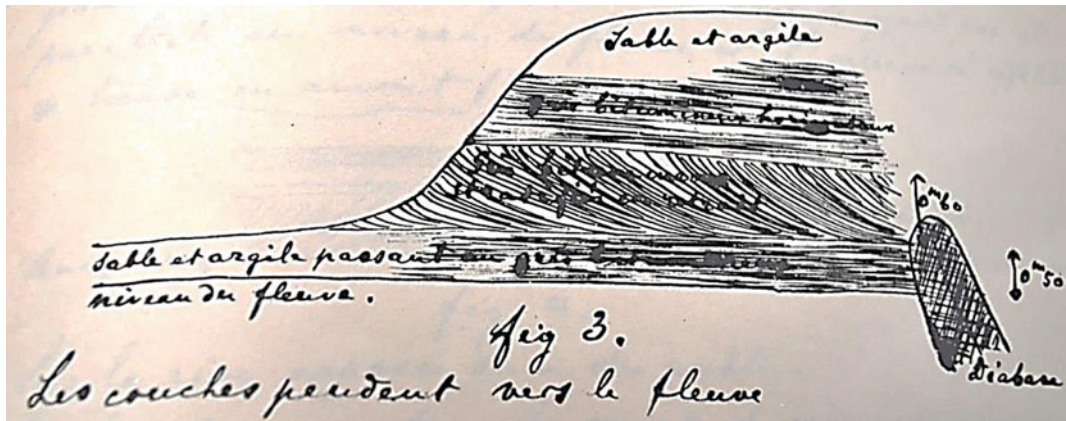 Sable et argile
grès bitumineux horizontaux
0m60
Sable et argile passant au grès bitumineux
0m50
niveau du fleuve.
fig 3.
Diabase
Les couches pendent vers le fleuve